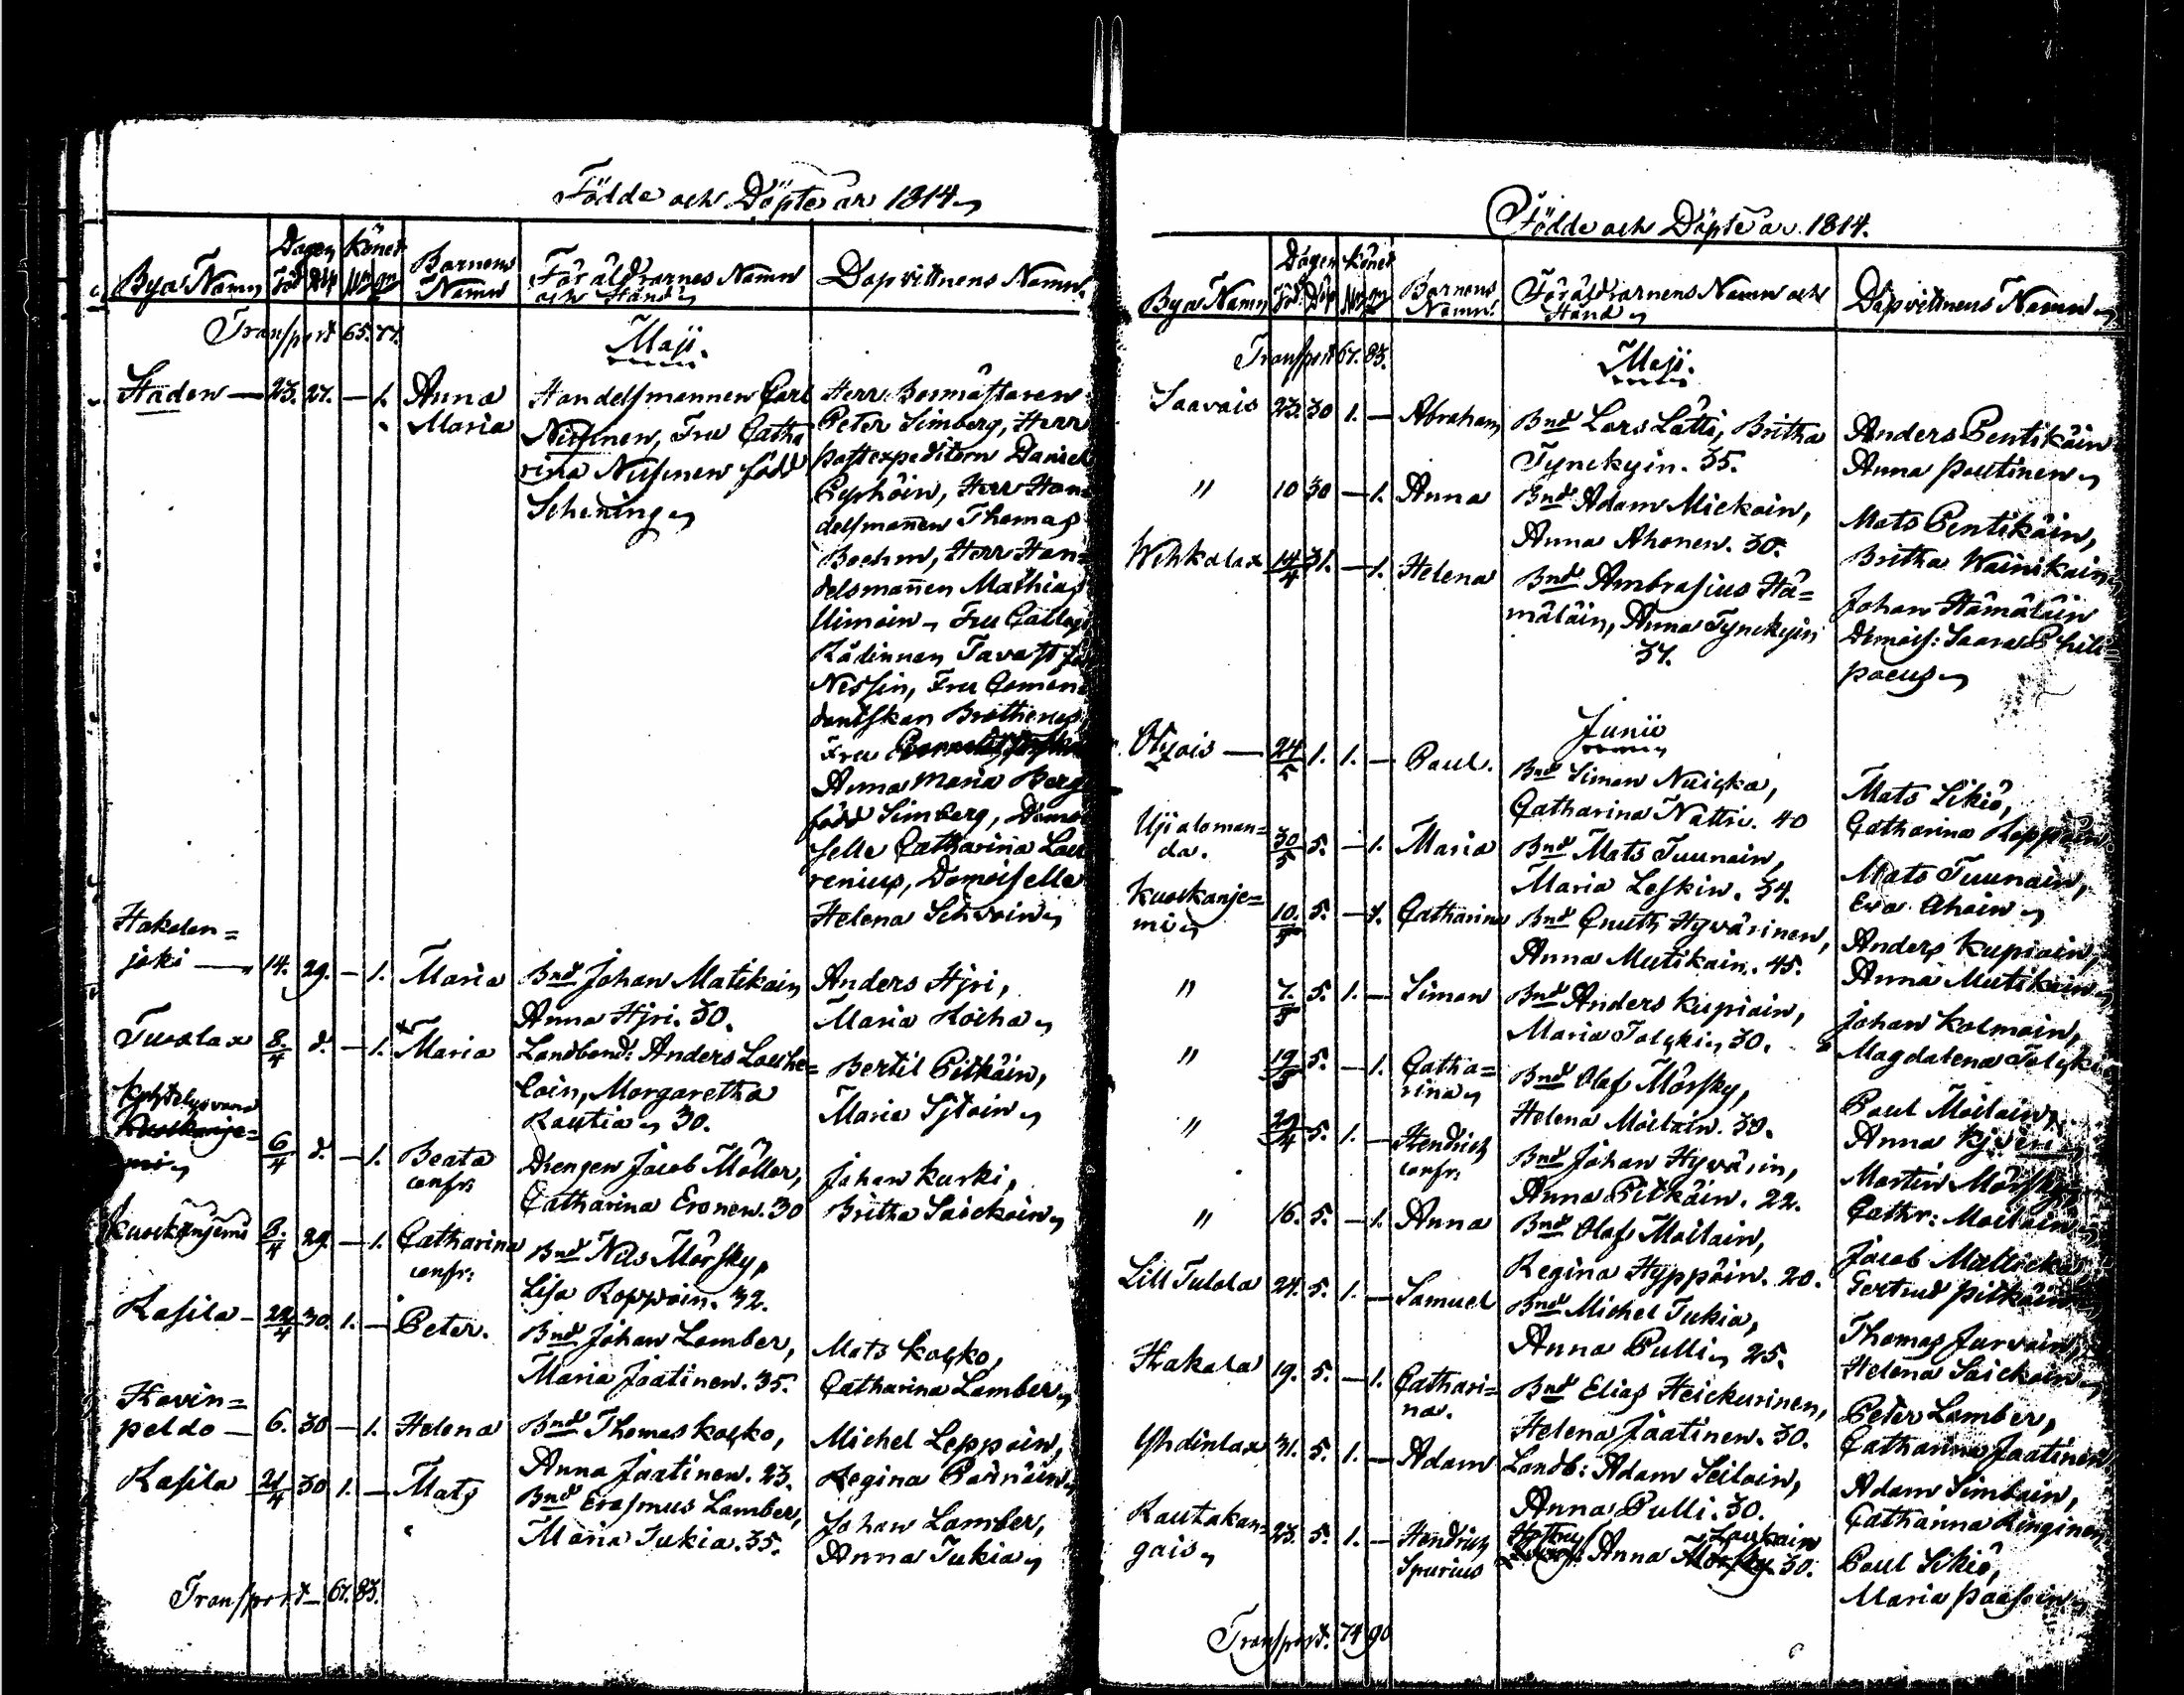 Födde och Döpte år 1814
Byars Namn
Dagen
Född
Döp
Könet
M
Q
Barnens
Namn
Föräldrarnes Namn
och Stånd
Dopvittnens Namn
Transport 65. 77.
Maji.
Staden — 23. 27. — 1. Anna
Maria
Handelsmannen Carl
Nissinen, Fru Catha
rina Nissinen född
Schening
Herr Borgmästaren
Peter Simberg, Herr
postexpeditorn Daniel
Herr Han
delsmannen Thomas
Boehm, Herr Han=
delsmannen Mathias
Fru Collegi
Rådinnan Tavast född
Fru Comen
dantskan
Fru
Anna Maria Berg
född Simberg, Demoi
selle Catharina Lau
renius, Demoiselle
Helena
joki — 14. 29. — 1. Maria
Bnd Johan Matikain
Anna Hjri. 30.
Anders Hjri,
Maria
Tuolax 8/4 d. — 1. Maria
Landbond: Anders
Margaretha
Rautia 30.
Bertil Pitkäin,
Maria
6/4 d. — 1. Beata
confr:
Drengen Jacob Möller,
Catharina Eronen. 30
Johan Kurki,
Britha Saickoin
Kuoskanjemi 8/4 29. — 1. Catharina
confr:
Bnd Nils Mörsky,
Lisa Roppoin. 32.
Rasila — 22/4 30. 1. — Peter.
Bnd Johan Lamber,
Maria Jaatinen. 35.
Mats Kosko,
Catharina Lamber
Kovin=
peldo — 6. 30 — 1. Helena
Bnd Thomas Kosko,
Anna Jaatinen. 23.
Michel Leppoin,
Regina
Rasila 21/4 30 1. — Mats
Bnd Erasmus Lamber,
Maria Tukia. 35.
Johan Lamber,
Anna Tukia
Transport — 67. 83.
Födde och Döpte år 1814.
Byars Namn
Dagen
Föd.
Döp
Könet
M
Q
Barnens
Namn
Föräldrarnens Namn och
Stånd
Dopvittnens Namn
Transport 67. 83.
Maji.
Saavais 23. 30 1. — Abraham
Bnd Lars Lätti, Britha
Tynckyin. 35.
Anders Pentikäin
Anna Poutinen
" 10 30 — 1. Anna
Bnd Adam Mickoin,
Anna Ahonen. 30.
Mats Pentikäin,
Britha Wainikain
Wehkalax 14/4 31. — 1. Helena
Bnd Ambrosius Hä=
mäläin, Anna Tynckyin
37.
Johan Hämäläin
Demois: Saara Phili=
paeus
Junii
24/5 1. 1. — Paul.
Bnd Simon
Catharina Nattri. 40
Mats Sikiö,
Catharina Roppoin
30/5 5. — 1. Maria
Bnd Mats Tuunain,
Maria Leskin. 34.
Mats Tuunain,
Eva Ahoin
Kuoskanje=
mi 10/5 5. — 1. Catharina
Bnd Cnuth Hyvärinen,
Anna Mutikain. 45.
Anders Kupiain,
Anna Mutikain
" 7/5 5. 1. — Simon
Bnd Anders Kupiain,
Maria Tolski 30.
Johan Kolmoin,
Magdalena
" 19/5 5. — 1. Catha=
rina
Bnd Olof Mörsky,
Helena Moilain. 39.
Paul Moilain,
Anna
" 29/4 5. 1. — Hendrich
confr:
Bnd Johan Hyvärin,
Anna Pitkäin. 22.
Martin Mörsky
Cathr: Moilain
" 16. 5. — 1. Anna
Bnd Olof Moilain,
Regina Hyppöin. 20.
Jacob
Gertrud Pitkäin
Lill Tulola 24. 5. 1. — Samuel
Bnd Michel Tukia,
Anna Pulli 25.
Thomas Jurvain,
Helena Saickoin
Hakala 19. 5. — 1. Cathari=
na.
Bnd Elias Heickurinen,
Helena Jaatinen. 30.
Peter Lamber,
Catharina Jaatinen
Yhdinlax 31. 5. 1. — Adam
Landb: Adam Seilain,
Anna Pulli. 30.
Adam
Catharina Ringinen
Rautakan=
gais 23. 5. 1. — Hendrich
Spurius
Anna Laukain 30.
Paul Sikiö,
Maria Paasoin
Transport. 74 90